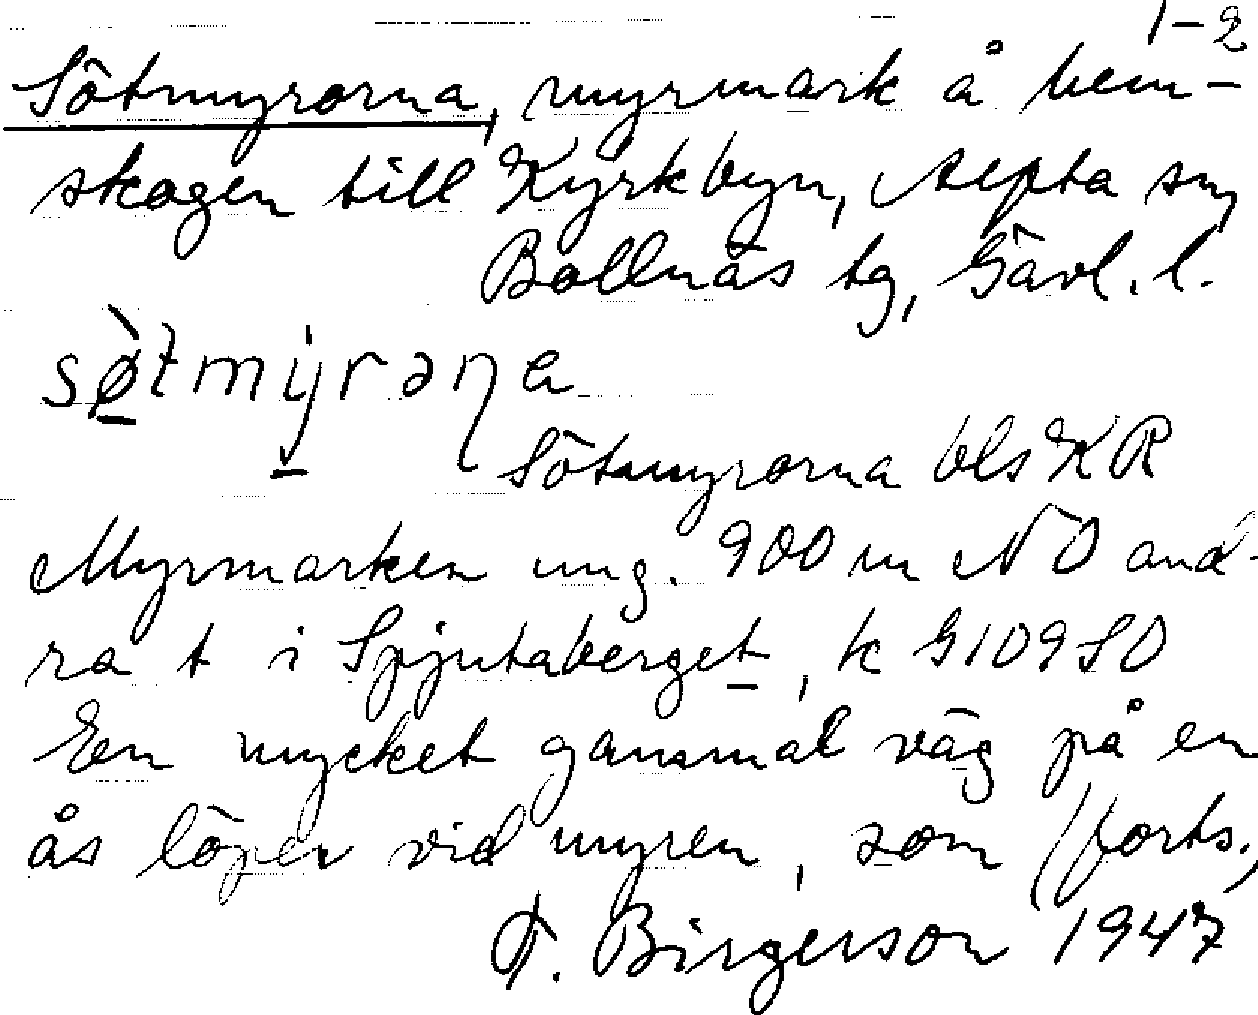 1-2
Sötmyrorna, myrmark å hem-
skogen till Kyrkbyn, Alfta sn,
Bollnäs tg, Gävl. l.
sø̀tmyrəɳa
Sötmyrorna bls KR
Myrmarken ung. 900 m NO and-
ra t i Spjutaberget, k G109SO
En mycket gammal väg på en
ås löper vid myren, som (forts.)
F. Birgerson 1947